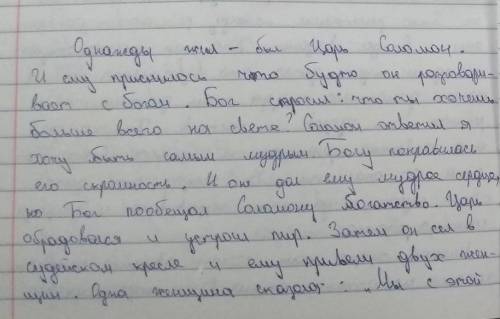 Однажды жил - был Царь Соломон.
И ему приснилось что будто он разговари-
вает с богом. Бог спросил: что ты хочешь
больше всего на свете? Соломон ответил я
хочу быть самым мудрым. Богу понравилась
его скромность. И он дал ему мудрое сердце,
но Бог пообещал Соломону богатство. Царь
обрадовался и устроил пир. Затем он сел в
судейском кресле и ему привели двух жен-
щин. Одна женщина сказала: „Мы с этой